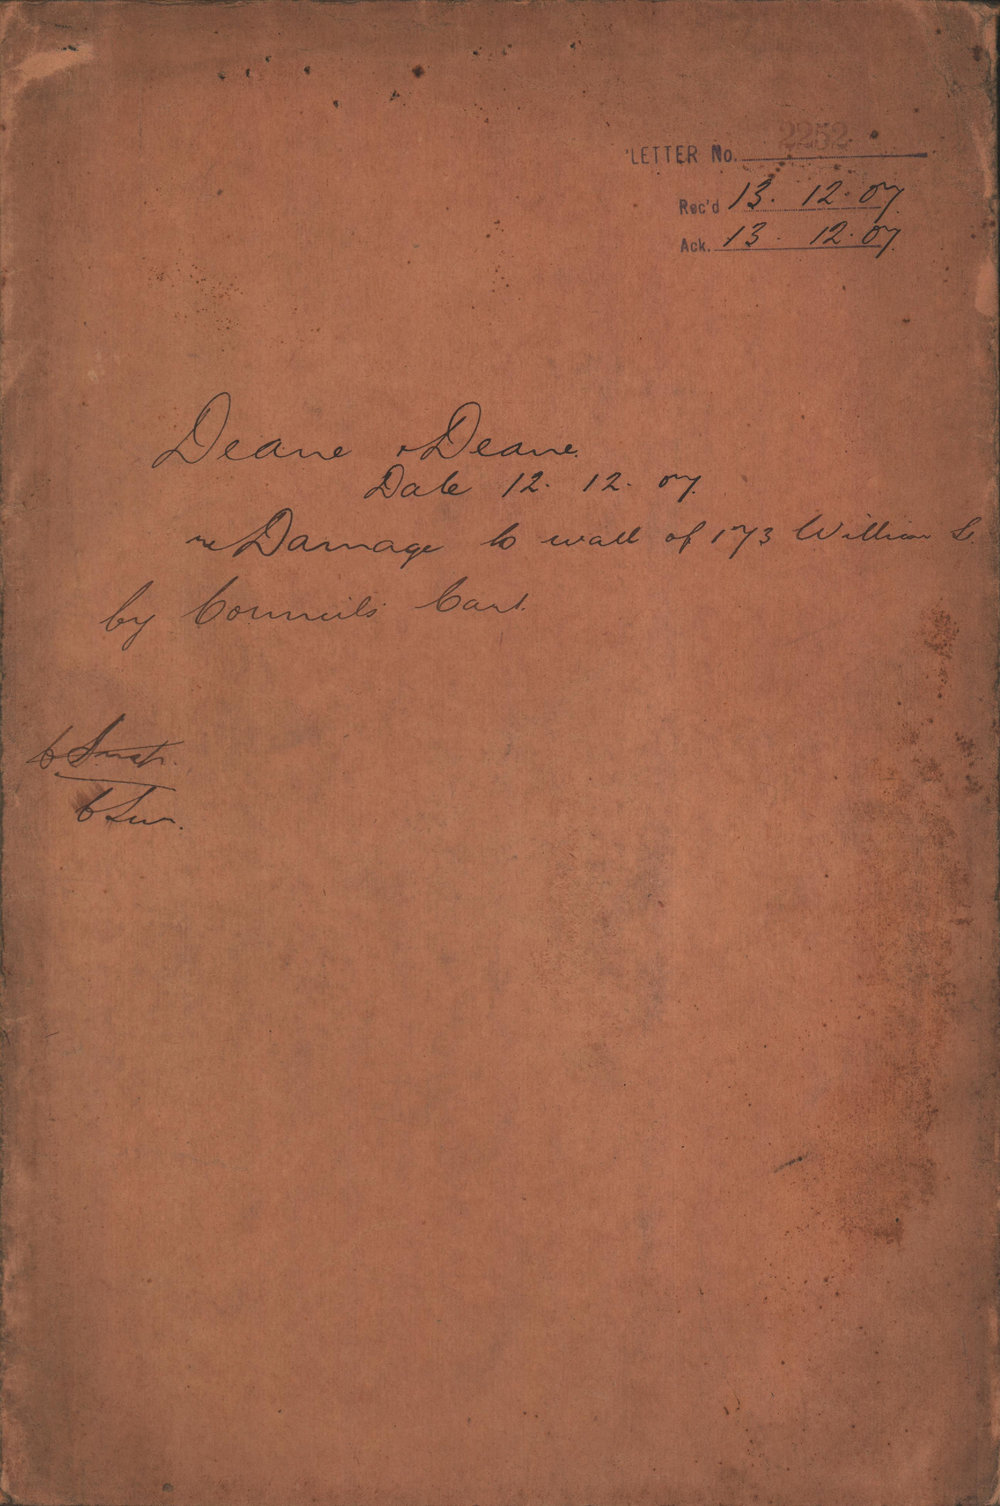 2252
LETTER No.
Rec'd 13. 12. 07.
Ack. 13. 12. 07.
Deane & Deane.
Date 12. 12. 07.
re Damage to wall of 173 William St
by Councils Cart.
C Sur.